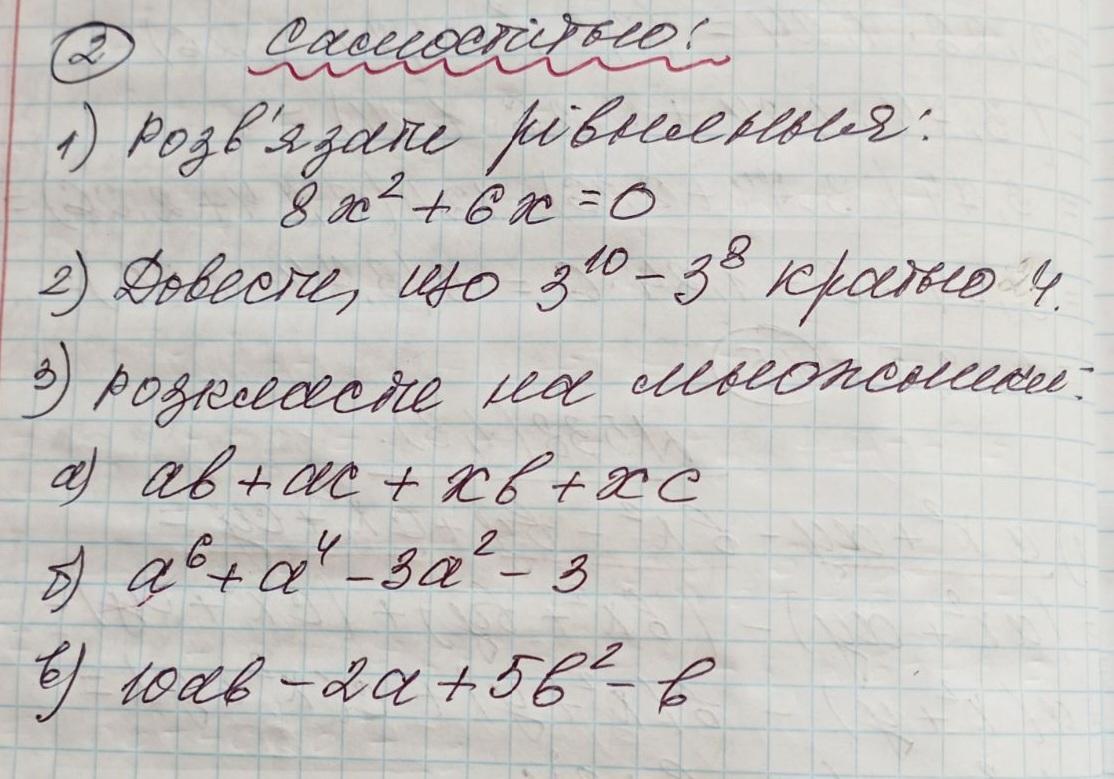 2 Самостійно:
1) Розв'язати рівняння:
8x² + 6x = 0
2) Довести, що 3¹⁰ - 3⁸ кратно 4.
3) Розкласти на множники:
а) ab + ac + xb + xc
б) a⁶ + a⁴ - 3a² - 3
в) 10ab - 2a + 5b² - b